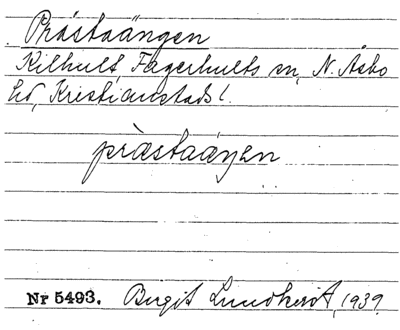 Prästaängen
Kilhult Fagerhults sn, N. Åsbo
hd, Kristianstads l.
prästaäŋen
Nr 5493. Birgit Lundkvist, 1939